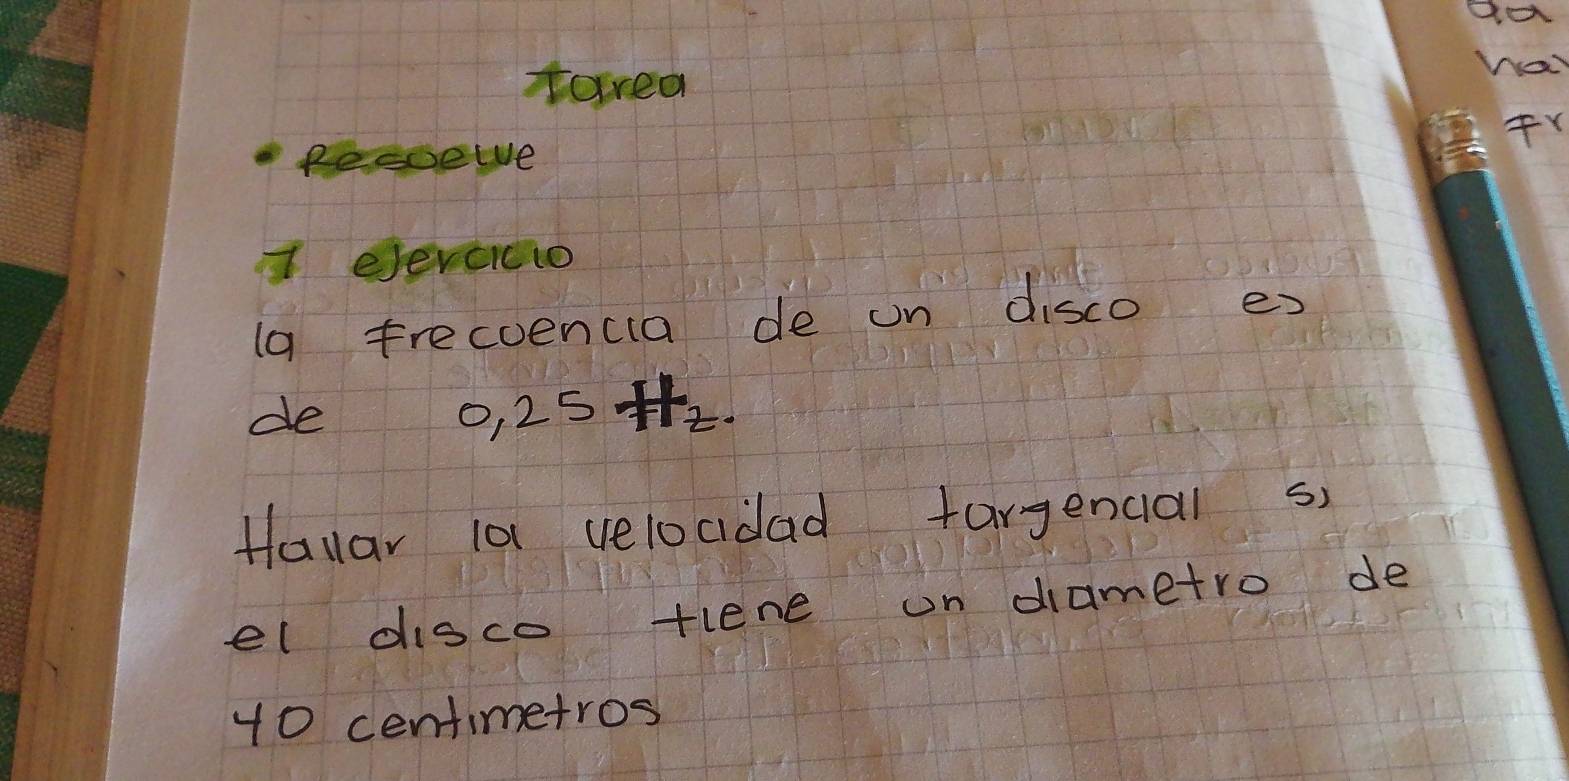 Tarea
• Resuelve
1 ejercicio
la frecuencia de un disco es
de 0,25 Hz.
Hallar la velocidad targencial si
el disco tiene un diametro de
40 centimetros